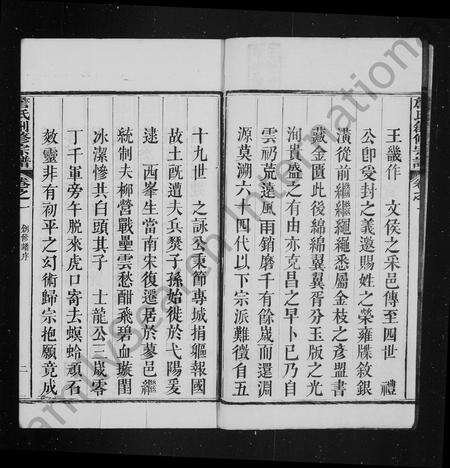 王畿作 文侯之采邑傳至四世 禮
公卽受封之義邀賜姓之榮雍牒敘銀
潢從前繼繼繩繩悉屬金枝之彥盟書
藏金匱此後綿綿翼翼胥分玉版之光
洵貴盛之有由亦克昌之早卜已乃自
雲礽荒遠風雨銷磨千有餘歲而還淵
源莫溯六十四代以下宗派難徵自五
十九世 之詠公秉節專城捐軀報國
故土既遭夫兵燹子孫始徙於弋陽爰
逮 西峯生當南宋復遷居於蓼邑繼
統制夫柳營戰壘雲愁酣飛碧血璇閨
冰潔慘共白頭其子 士龍公一歲零
丁千軍旁午脫來虎口寄去螟蛉頑石
效靈非有初平之幻術歸宗抱願竟成
氏創修宗譜 卷之一 創修譜序 二
FamilySearch International